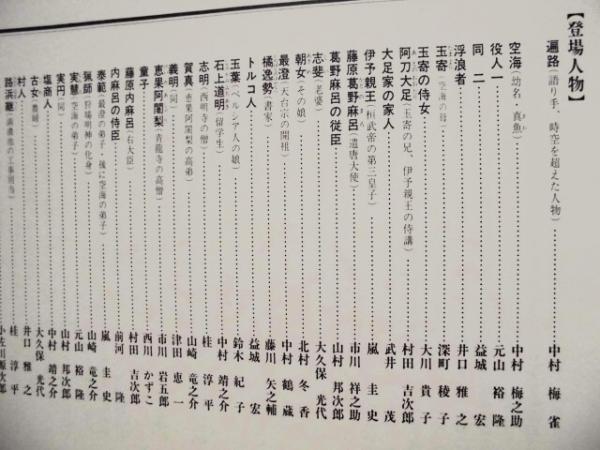 【登場人物】
遍路(語り手、時空を超えた人物)……中村 梅雀
空海(幼名・真魚)……中村 梅之助
役人一……元山 裕隆
同 二……益城 宏
浮浪者……井口 雅之
玉寄(空海の母)……深町 稜子
玉寄の侍女……大川 貴子
阿刀大足(玉寄の兄、伊予親王の侍講)……村田 吉次郎
大足家の家人……武井 茂
伊予親王(桓武帝の第三皇子)……嵐 圭史
藤原葛野麻呂(遣唐大使)……市川 祥之助
葛野麻呂の従臣……山村 邦次郎
志斐(老婆)……大久保 光代
朝女(その娘)……北村 冬香
最澄(天台宗の開祖)……中村 鶴蔵
橘逸勢(書家)……藤川 矢之輔
トルコ人……益城 宏
玉葉(ペルシア人の娘)……鈴木 紀子
石上道明(留学生)……中村 靖之介
志明(西明寺の僧)……桂 淳平
賀真(恵果阿闍梨の高弟)……山崎 竜之介
義明(同)……津田 恵一
恵果阿闍梨(青龍寺の高僧)……市川 岩五郎
童子……西川 かずこ
藤原内麻呂(右大臣)……村田 吉次郎
内麻呂の侍臣……前河 隆
泰範(最澄の弟子、後に空海の弟子)……嵐 圭史
猟師(狩場明神の化身)……山崎 竜之介
実慧(空海の弟子)……元山 裕隆
実円(同)……山村 邦次郎
塩商人……中村 靖之介
古女(農婦)……大久保 光代
村人……井口 雅之
路浜継(満濃池の工事別当)……桂 淳平
小佐川源次郎